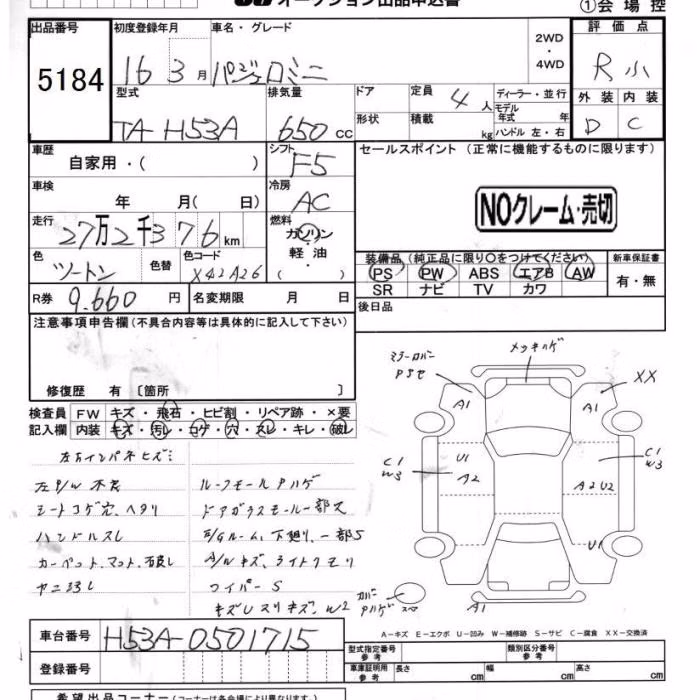 オークション出品申込書
①会場控
出品番号
5184
初度登録年月
16 3月
車名・グレード
パジェロミニ
2WD
・
4WD
評価点
R 小
外装 内装
D C
型式
TA-H53A
排気量
650 cc
ドア
形状
定員
4 人
積載
kg
ディーラー・並行
モデル
年式 年
ハンドル 左・右
車歴
自家用・( )
シフト
F5
車検
年 月( 日)
冷房
AC
走行
27万2千376km
燃料
ガソリン
・
軽油
・
( )
色
ツートン
色替
色コード
X42A26
R券
9.660 円
名変期限 月 日
セールスポイント (正常に機能するものに限ります)
NOクレーム・売切
装備品(純正品に限り○をつけてください)
PS PW ABS エアB AW
SR ナビ TV カワ
新車保証書
有・無
後日品
注意事項申告欄(不具合内容等は具体的に記入して下さい)
修復歴 有〔箇所 〕
検査員
記入欄
FW キズ・飛石・ヒビ割・リペア跡・×要
内装 キズ・汚レ・コゲ・穴・スレ・キレ・破レ
左右インパネキズミ
左P/W 不良
シートコゲ穴、ヘタリ
ハンドルスレ
カーペット、マット、汚破レ
ヤニ汚レ
ルーフモールPハゲ
ドアガラスモール一部欠
E/Gルーム、下廻り、一部S
A/Wキズ、ライトクモリ
ワイパーS
キズレスリキズ、W2
ミラーカバー
メッキハゲ
A1
A1
XX
C1
W3
U1
A2
A2 U2
C1
W3
U1
A1
カバー
Pハゲ
A-キズ E-エクボ U-凹み W-補修跡 S-サビ C-腐食 XX-交換済
車台番号
H53A-0501715
登録番号
型式指定番号
参考
類別区分番号
参考
車庫証明用
参考
長さ cm 幅 cm 高さ cm
希望出品コーナー(コーナーは各会場により異なります。)